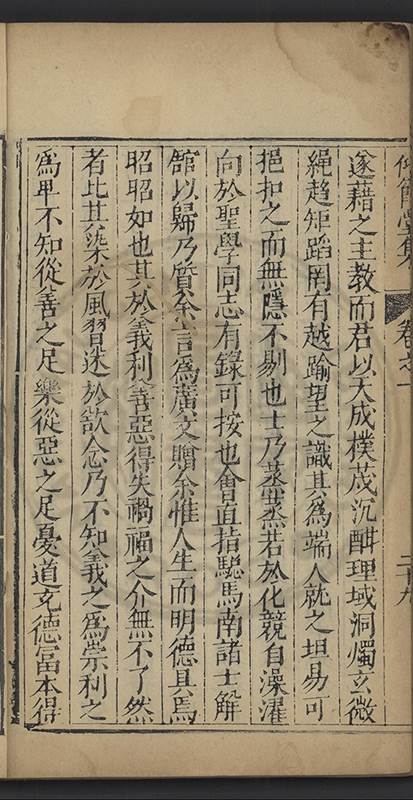 仰節堂集 卷之一 二十九
遂藉之主教而君以天成樸茂沉酣理域洞燭玄微
繩趨矩蹈罔有越踰望之識其爲端人就之坦易可
挹扣之而無隱不剔也士乃蒸蒸若於化競自澡濯
向於聖學同志有錄可按也會直指驄馬南諸士解
舘以歸乃質余言爲廣文贈余惟人生而明德具焉
昭昭如也其於義利善惡得失禍福之介無不了然
者比其染於風習迷於欲念乃不知義之爲崇利之
爲卑不知從善之足樂從惡之足憂道充德富本得